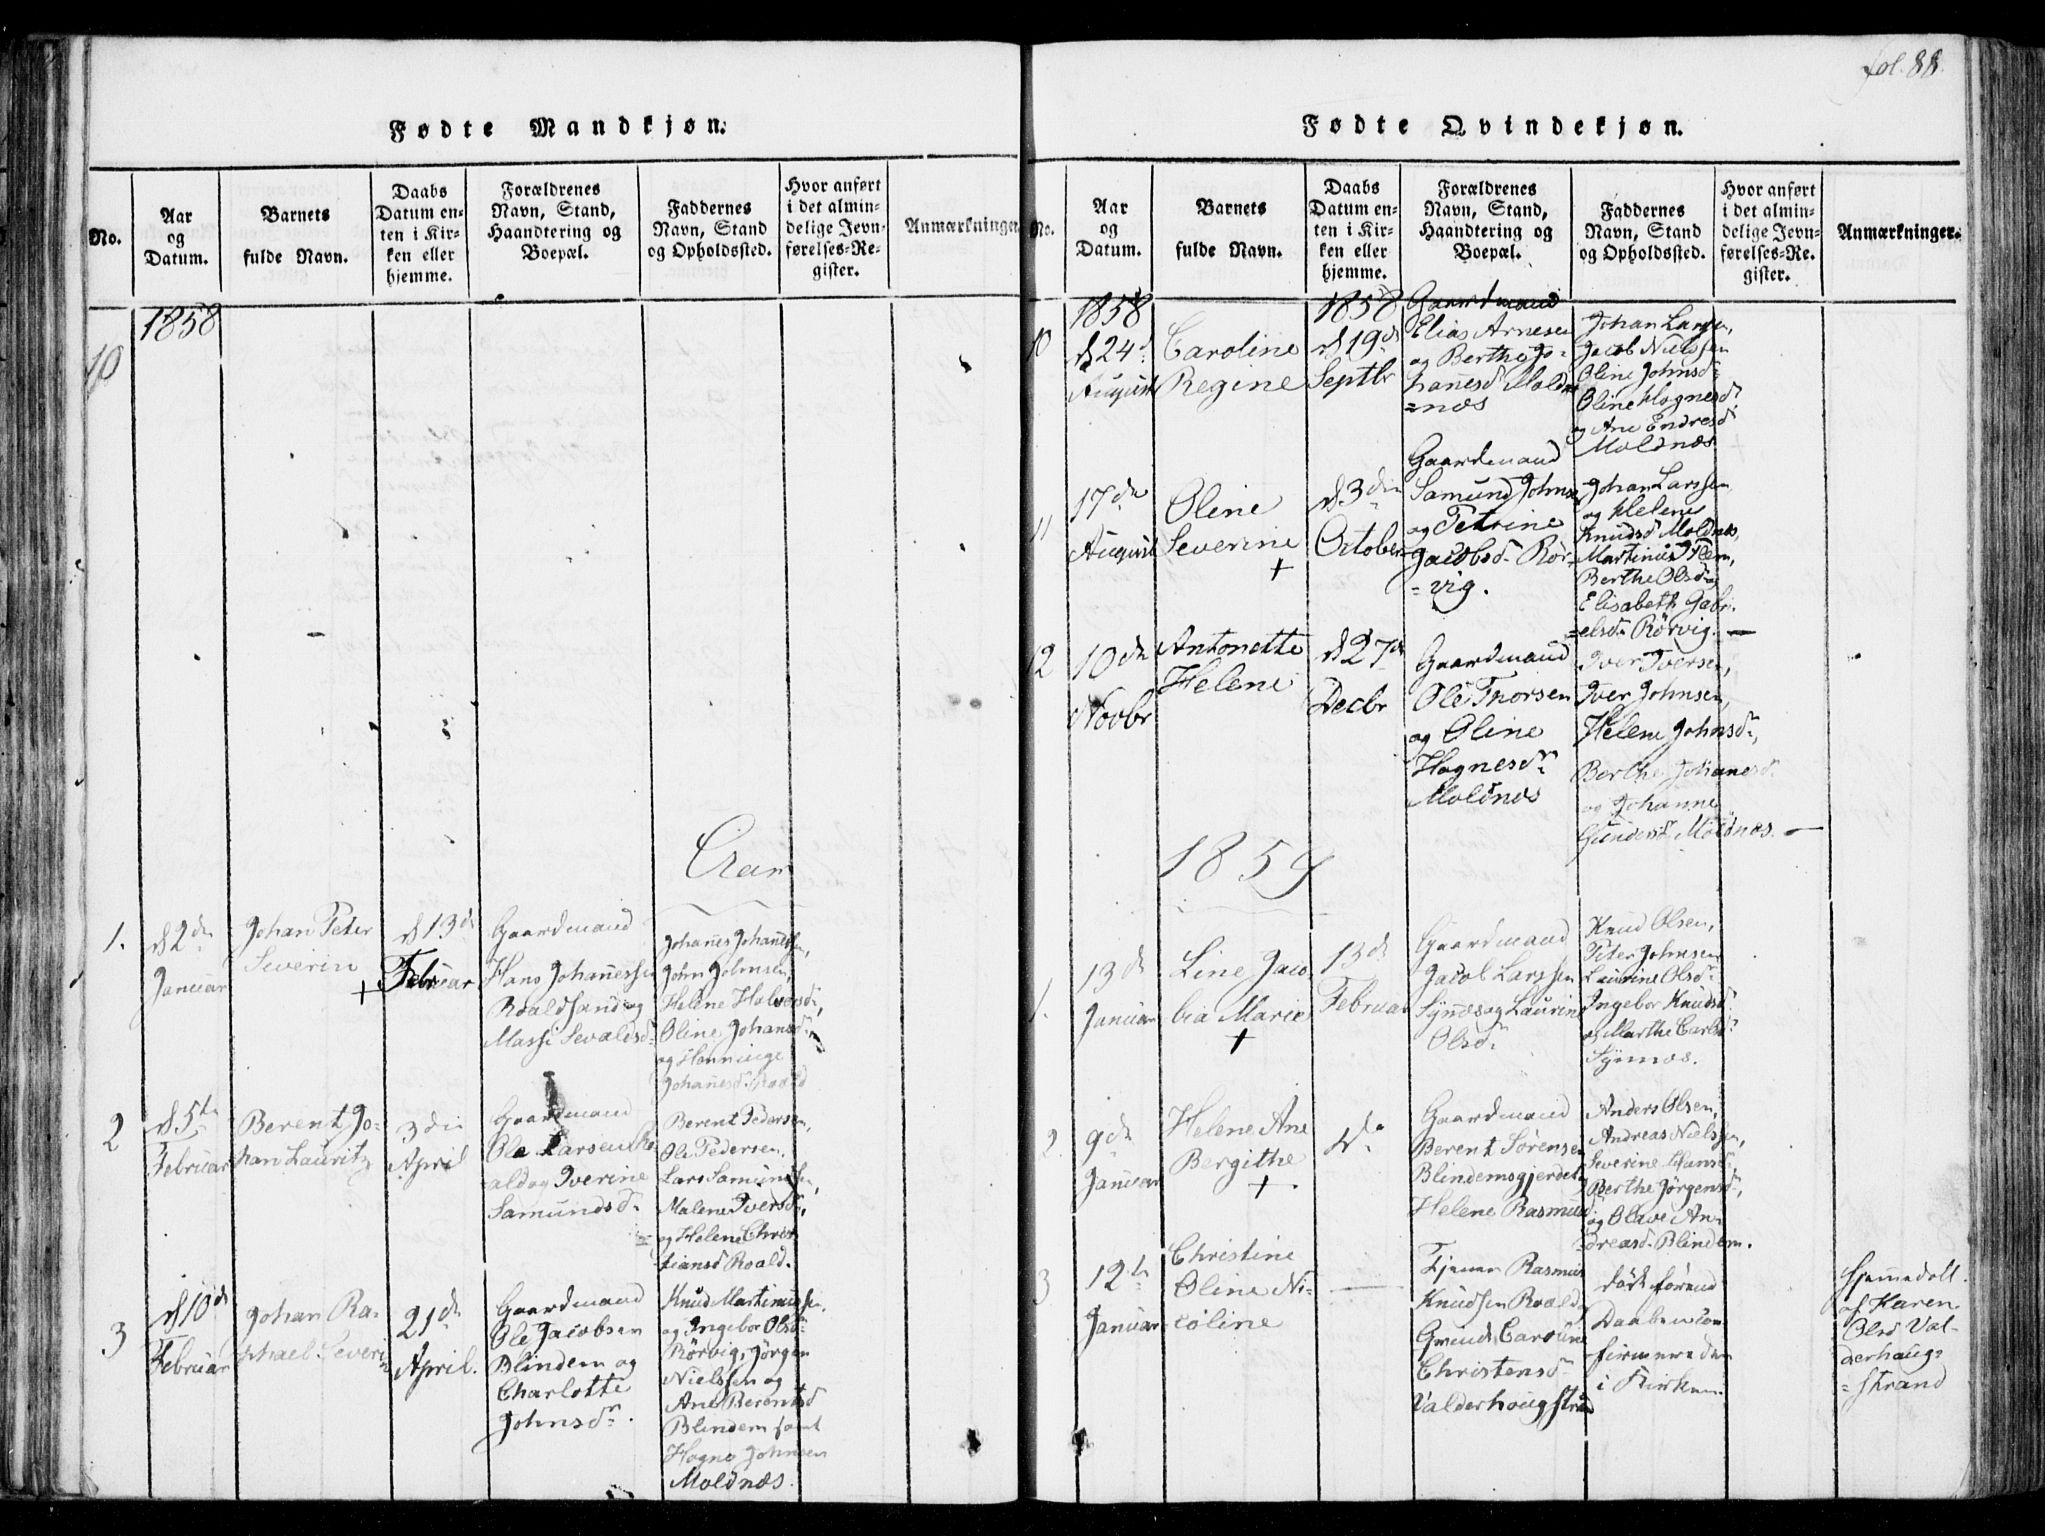 fol. 88.
Fødte Mandkjøn.
No.
Aar
og
Datum.
Barnets
fulde Navn.
Daabs
Datum en-
ten i Kir-
ken eller
hjemme.
Forældrenes
Navn, Stand,
Haandtering og
Boepæl.
Faddernes
Navn, Stand
og Opholdssted.
Hvor anført
i det almin-
delige Jevn-
førelses-Re-
gister.
Anmærkninger.
1858
10
Aar
1.
d 2den
Januar
Johan Peter
Severin
+
d 13de
Februar
Gaardmand
Hans Johanessen
Roaldsand og
Massi Sevaldsd.
Johanes Johanessen,
John Johnsen,
Helene Halvorsd,
Oline Johansd
og Henninge
Johanesd. Roald
2
d 5te
Februar
Berent Jo-
han Lauritz
3die
April
Gaardmand
Ole Larsen Ro-
ald og Iverine
Samundsd.
Berent Pedersen,
Ole Pedersen,
Lars Samundsen,
Malene Iversd,
og Helene Chris-
tiansd Roald.
3
d 10de
Februar
Johan Ra-
phael Severin
21de
April.
Gaardmand
Ole Jacobsen
Blindem og
Charlotte
Johnsdr.
Knud Martinussen,
og Ingebor Olsdr
Rörvig, Jørgen
Nielssen og
Ane Berentsd
Blindem samt
Hogne Johnsen
Moldnæs.
Fødte Qvindekjøn.
No.
Aar
og
Datum.
Barnets
fulde Navn.
Daabs
Datum en-
ten i Kir-
ken eller
hjemme.
Forældrenes
Navn, Stand,
Haandtering og
Boepæl.
Faddernes
Navn, Stand
og Opholdssted.
Hvor anført
i det almin-
delige Jevn-
førelses-Re-
gister.
Anmærkninger.
10
1858
d 24de
August
Caroline
Regine
1858
d 19de
Septbr
Gaardmand
Elias Arnesen
og Berthe Jo-
hanesd Moldnæs
=næs
Johan Larsen,
Jacob Nielssen
Oline Johnsd
Oline Hognesd.
og Ane Endresd
Moldnæs
11
17de
August
Oline
Severine
+
d 3die
October
Gaardmand
Samund Johnsen
og Petrine
Jacobsd. Rör-
=vig.
Johan Larssen
og Helene
Knudsd Moldnæs,
Martinus Flem,
Berthe Olsd og
Elisabeth Gabri-
=elsd. Rörvig. —
12
10de
Novbr
Antonette
Helene
d 27de
Decbr
Gaardmand
Ole Thorsen
og Oline
Hognesdr.
Moldnæs
Iver Iversen,
Iver Johnsen,
Helene Johnsdr,
Berthe Johanesd.
og Johanne
Gundersd. Moldnæs. —
1859
1.
13de
Januar
Line Jaco-
bia Marie
+
13de
Februar
Gaardmand
Jacob Larssen
Synnes og Laurine
Olsdr.
Knud Olsen,
Peter Johnsen
Laurine Olsdr
Ingebor Knudsd
og Marthe Carlsd
Synnæs.
2.
9de
Januar
Helene Ane
Bergithe
+
do
Gaardmand
Berent Sörensen
Blindemsgjerdet
Helene Rasmusd
Anders Olsen,
Andreas Nielssen,
Severine Hansd.
Berthe Jörgensd,
og Olave An-
=dreasd. Blindem.
3
12te
Januar
Christine
Oline Ni-
coline
—
Tjener Rasmus
Knudsen Roald
Gmind. Caroline
Christensdr
Valderhougstrand
död förend
Daaben con
firmeredes
i Kirken.
Hjemmedøbt
af Karen
Olsd Val-
derhaug-
=strand